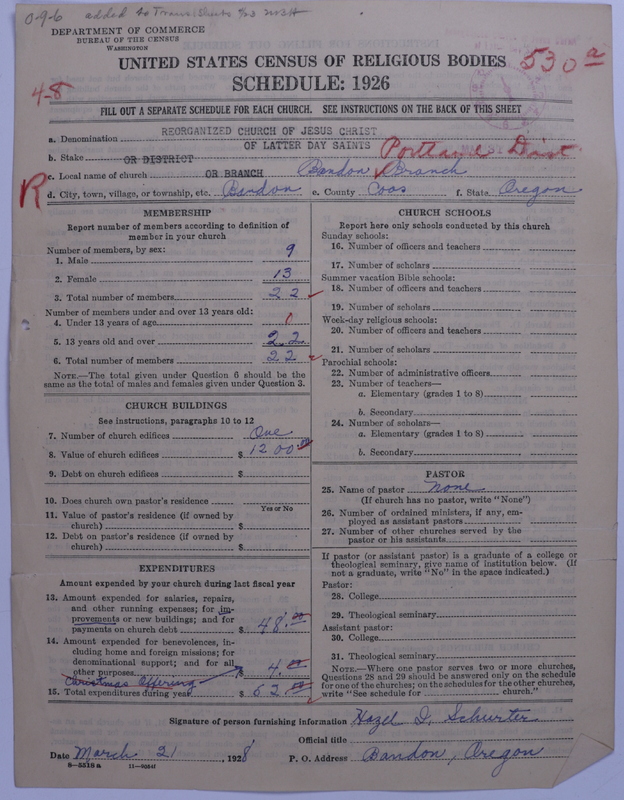 0-9-6 added to Trans Sheets
DEPARTMENT OF COMMERCE
BUREAU OF THE CENSUS
WASHINGTON
UNITED STATES CENSUS OF RELIGIOUS BODIES
530a
SCHEDULE: 1926
4-8
FILL OUT A SEPARATE SCHEDULE FOR EACH CHURCH. SEE INSTRUCTIONS ON THE BACK OF THIS SHEET
a. Denomination REORGANIZED CHURCH OF JESUS CHRIST
OF LATTER DAY SAINTS
b. Stake OR DISTRICT Portland Dist
c. Local name of church OR BRANCH Bandon Branch
R d. City, town, village, or township, etc. Bandon e. County Coos f. State Oregon
MEMBERSHIP
Report number of members according to definition of
member in your church
Number of members, by sex:
1. Male 9
2. Female 13
3. Total number of members 22
Number of members under and over 13 years old:
4. Under 13 years of age 0
5. 13 years old and over 22
6. Total number of members 22
NOTE.—The total given under Question 6 should be
the same as the total of males and females given under Question 3.
CHURCH BUILDINGS
See instructions, paragraphs 10 to 12
7. Number of church edifices One
8. Value of church edifices $ 1200.00
9. Debt on church edifices $
10. Does church own pastor's residence
Yes or No
11. Value of pastor's residence (if owned by
church) $
12. Debt on pastor's residence (if owned by
church) $
EXPENDITURES
Amount expended by your church during last fiscal year
13. Amount expended for salaries, repairs,
and other running expenses; for im-
provements or new buildings; and for
payments on church debt $ 48.00
14. Amount expended for benevolences, in-
cluding home and foreign missions; for
denominational support; and for all
other purposes $ 4.00
Christmas Offering
15. Total expenditures during year $ 52.00
CHURCH SCHOOLS
Report here only schools conducted by this church
Sunday schools:
16. Number of officers and teachers
17. Number of scholars
Summer vacation Bible schools:
18. Number of officers and teachers
19. Number of scholars
Week-day religious schools:
20. Number of officers and teachers
21. Number of scholars
Parochial schools:
22. Number of administrative officers
23. Number of teachers—
a. Elementary (grades 1 to 8)
b. Secondary
24. Number of scholars—
a. Elementary (grades 1 to 8)
b. Secondary
PASTOR
25. Name of pastor none
(If church has no pastor, write "None")
26. Number of ordained ministers, if any, em-
ployed as assistant pastors
27. Number of other churches served by the
pastor or his assistants
If pastor (or assistant pastor) is a graduate of a college or
theological seminary, give name of institution below. (If
not a graduate, write "No" in the space indicated.)
Pastor:
28. College
29. Theological seminary
Assistant pastor:
30. College
31. Theological seminary
NOTE.—Where one pastor serves two or more churches,
Questions 28 and 29 should be answered only on the schedule
for one of the churches; on the schedules for the other churches,
write "See schedule for church."
Signature of person furnishing information Hazel I. Schurter
Official title
Date March 21, 1928 P. O. Address Bandon, Oregon
8-5518a 11-9564f